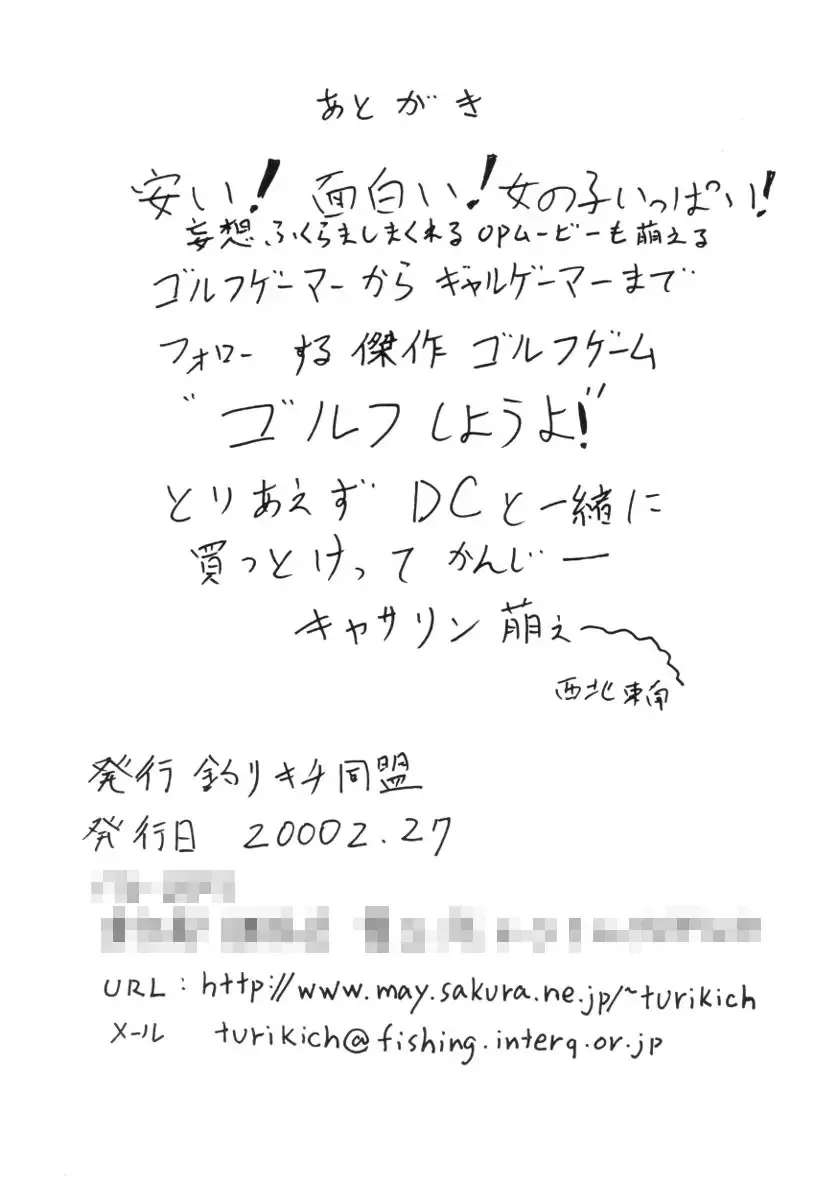 あとがき
安い! 面白い! 女の子いっぱい!
妄想ふくらましまくれるOPムービーも萌える
ゴルフゲーマーからギャルゲーマーまで
フォローする傑作ゴルフゲーム
"ゴルフしようよ!"
とりあえずDCと一緒に
買っとけってかんじー
キャサリン萌え〜
西北東南
発行 釣りキチ同盟
発行日 20002.27
URL:http://www.may.sakura.ne.jp/~turikich
メール turikich@fishing.interq.or.jp